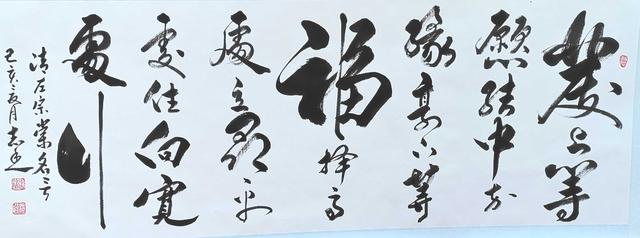 發上等
願結中等
緣享下等
福擇高
處立尋平
處住向寬
處行
清左宗棠名言
己亥 月志